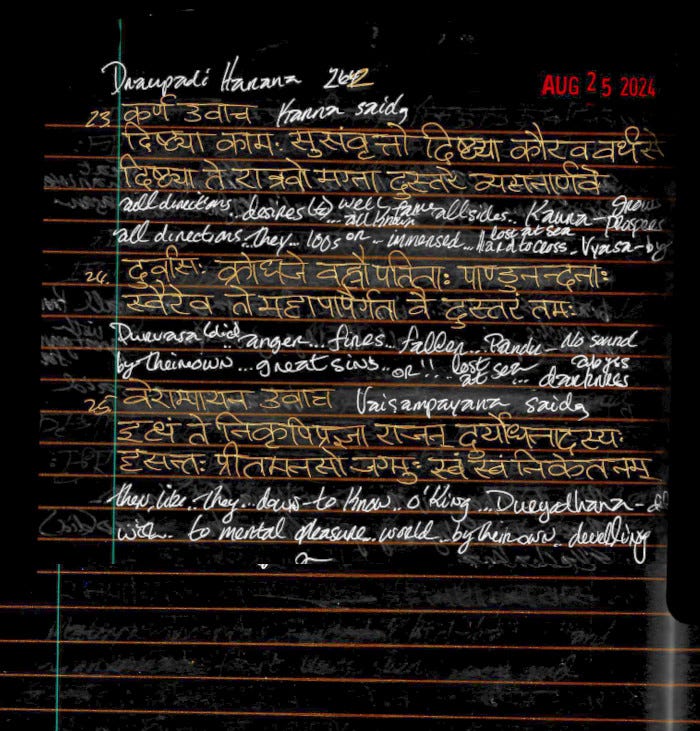 Draupadi Harana 262
AUG 25 2024
23. कर्ण उवाच Karna said,
दिष्ट्या कामः सुसंवृत्तो दिष्ट्या कौरव वर्धसे
दिष्ट्या ते शत्रवो मग्ना दुस्तरे व्यसनार्णवे
all directions.. desires (to) well.. fame all sides.. Kaurava - grow prospers
all known
all directions.. They.. 100s or - immersed.. Hard to cross - Vyasa - by
lost at sea
24. दुर्वासः क्रोधजे वह्नौ पतिताः पाण्डुनन्दनाः
स्वैरेव ते महापापैर्गता वै दुस्तरं तमः
Durvasa (did) anger... fires.. fallen... Pandu - No sound
by their own... great sins.. or!!.. lost at sea... abyss darkness
25 वैशम्पायन उवाच Vaisampayana said,
इत्थं ते निकृतिप्रज्ञा राजन् दुर्योधनादयः
हसन्तः प्रीतमनसो जग्मुः स्वं स्वं निकेतनम्
then, like.. They... down - to know.. o'King... Dueyodhana -
with.. to mental pleasure.. world.. by their own.. dwelling